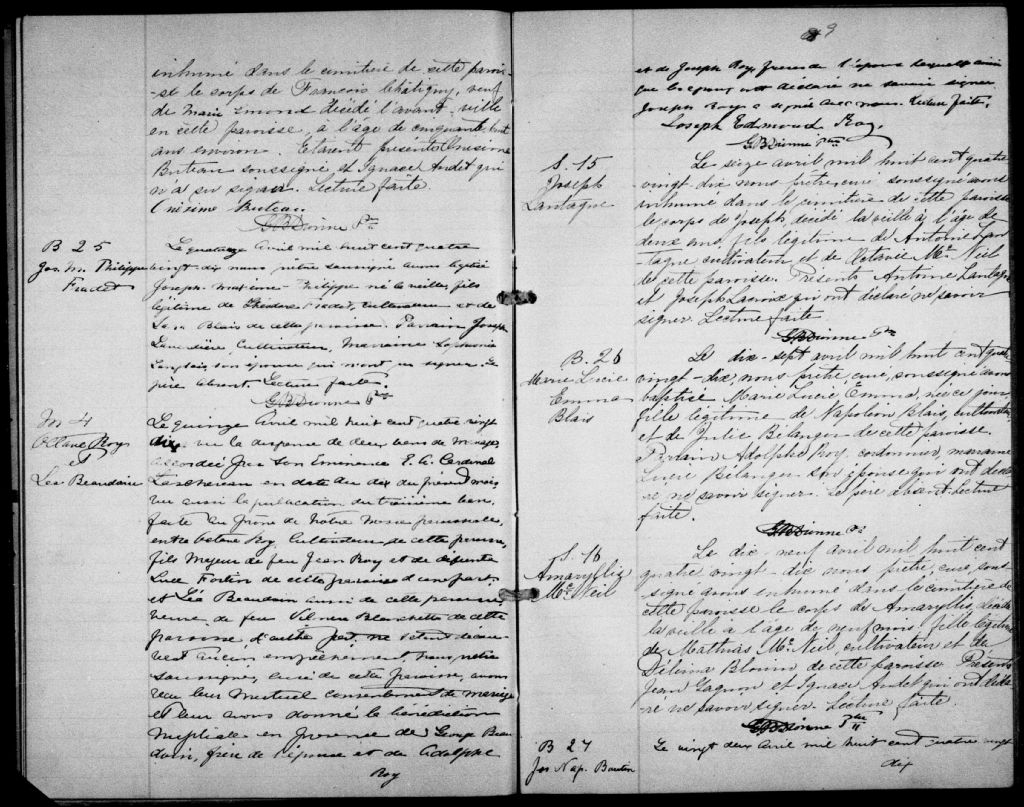 inhumé dans le cimetière de cette parois-
-se le corps de François Chétigny, veuf
de Marie Emond décédé l'avant-veille
en cette paroisse, à l'âge de cinquante huit
ans environ. Etaient présents Onésime
Buteau soussigné et Ignace Audet qui
n'a su signer. Lecture faite
Onésime Buteau
G.B. Dionne Ptre
B 25
Jos. M. Philippe
Fradet
Le quatorze Avril mil huit cent quatre
vingt-dix nous prêtre soussigné avons baptisé
Joseph Philippe né la veille, fils
légitime de Théodore Fradet, Cultivateur et de
Blais de cette paroisse. Parrain Joseph
Cultivateur, Marraine
Langlais, son épouse qui n'ont su signer. Le
père absent. Lecture faite.
G.B. Dionne Ptre
M 4
Octave Roy
et
Léa Beaudoin
Le quinze Avril mil huit cent quatre vingt
dix, vu la dispense de deux bans de mariage
accordée par Son Eminence E. A. Cardinal
Taschereau en date du dix du présent mois,
vu aussi la publication du troisième ban,
faite au prône de notre Messe paroissiale,
entre Octave Roy Cultivateur de cette paroisse,
fils Majeur de feu Jean Roy et de défunte
Luce Fortin de cette paroisse d'une part,
et Léa Beaudoin aussi de cette paroisse,
veuve de feu Blanchette de cette
paroisse d'autre part, ne s'étant découvert
aucun empêchement, nous prêtre
soussigné, curé de cette paroisse, avons
reçu leur mutuel consentement de mariage
et leur avons donné la bénédiction
nuptiale en présence de George Beau
doin, frère de l'épouse et de Adolphe
Roy
9
et de Joseph Roy, frères de l'époux lesquels ainsi
que les époux ont déclaré ne savoir signer
Joseph Roy a signé avec nous. Lecture faite.
Joseph Edmond Roy.
G.B. Dionne Ptre
S. 15
Joseph
Lantagne
Le seize avril mil huit cent quatre
vingt-dix nous prêtre, curé soussigné avons
inhumé dans le cimetière de cette paroisse
le corps de Joseph, décédé la veille à l'âge de
deux ans, fils légitime de Antoine Lan-
tagne cultivateur et de Octavie Mc Neil
de cette paroisse. Présents Antoine Lantagne
et Joseph Lacroix qui ont déclaré ne savoir
signer. Lecture faite.
G.B. Dionne Ptre
B. 26
Marie Lucie
Emma
Blais
Le dix-sept avril mil huit cent quatre
vingt-dix, nous prêtre, curé, soussigné avons
baptisé Marie Lucie Emma, née ce jour
fille légitime de Napoléon Blais, cultivateur
et de Julie Bélanger de cette paroisse.
Parrain Adolphe Roy, cordonnier, marraine
Lucie Bélanger son épouse qui ont décla-
ré ne savoir signer. Le père absent. Lecture
faite.
G.B. Dionne Ptre
S. 16
Amaryllis
Mc Neil
Le dix-neuf avril mil huit cent
quatre vingt-dix nous prêtre, curé, sous-
signé avons inhumé dans le cimetière de
cette paroisse le corps de Amaryllis, décédée
la veille à l'âge de neuf mois, fille légitime
de Mathias Mc Neil, cultivateur et de
Délima Blouin de cette paroisse. Présents
Jean Gagnon et Ignace Audet qui ont décla-
-ré ne savoir signer. Lecture faite.
G.B. Dionne Ptre
B 27
Jos Nap. Boutin
Le vingt deux Avril mil huit cent quatre vingt
dix